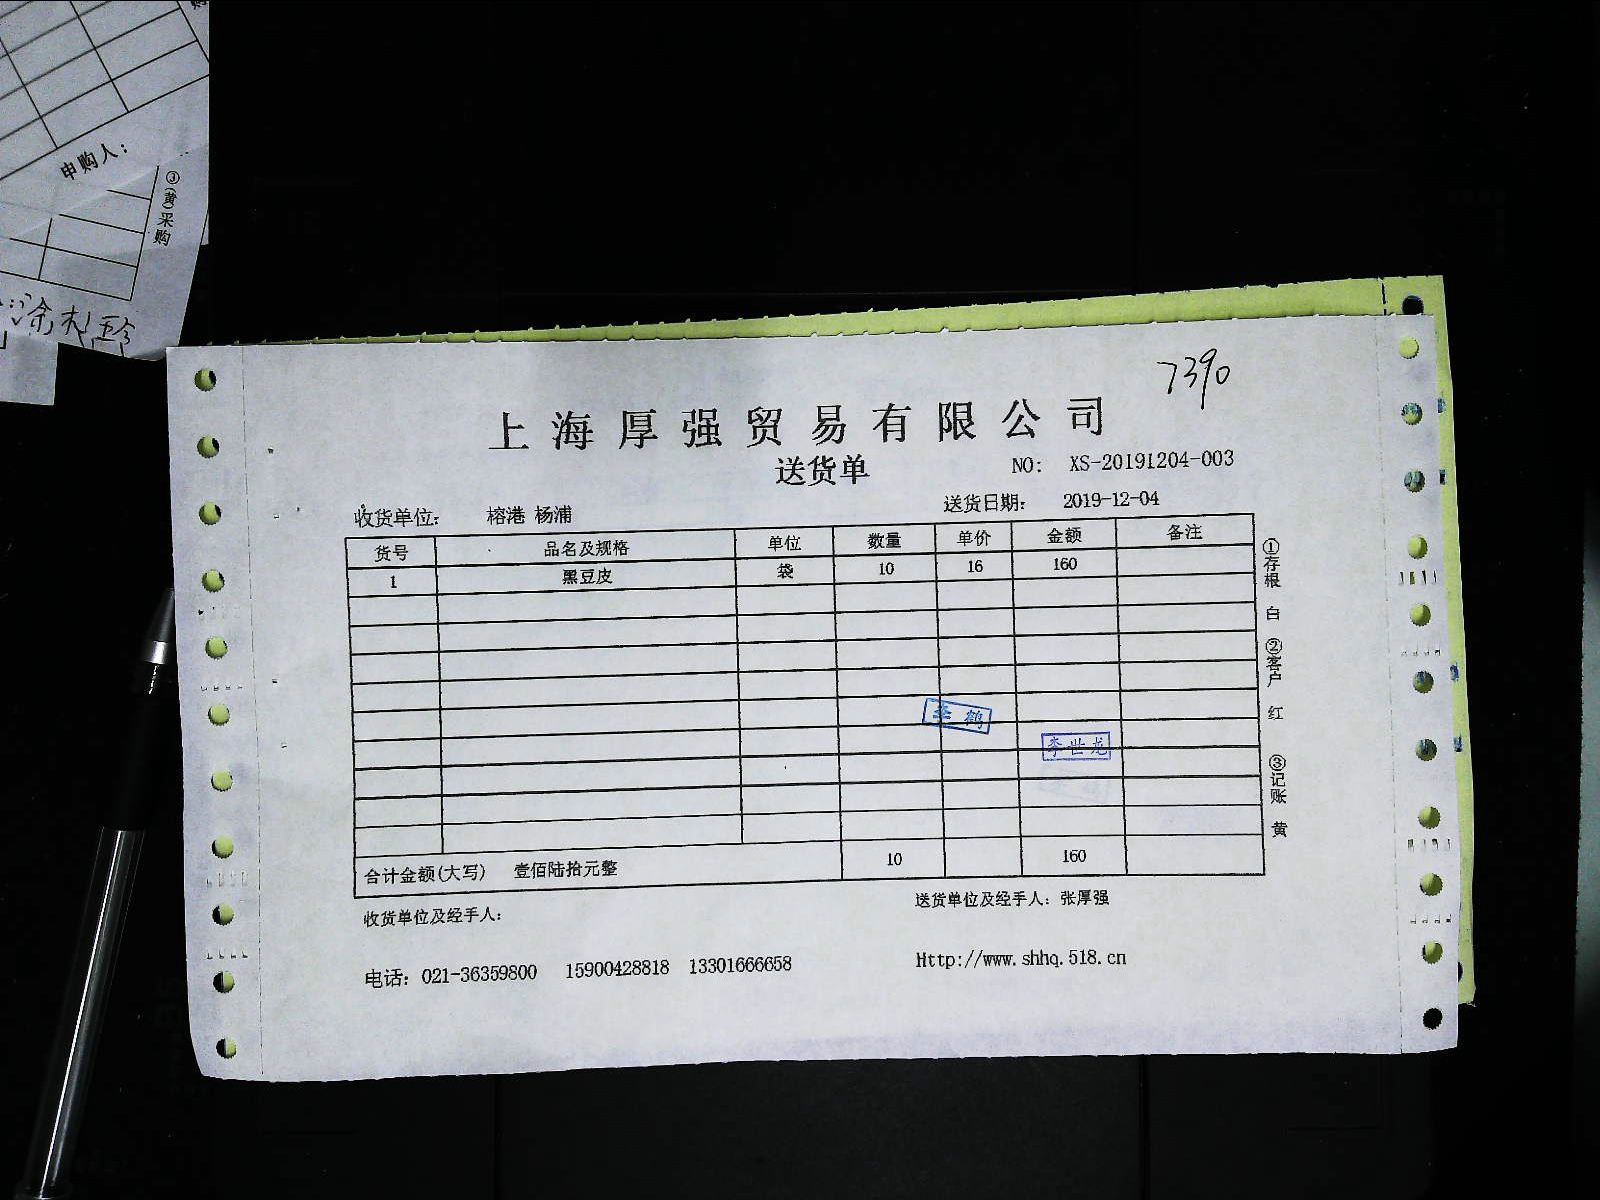 申购人：
③(黄)采购
7390
上海厚强贸易有限公司
送货单
NO: XS-20191204-003
收货单位: 榕港 杨浦
送货日期: 2019-12-04
货号 品名及规格 单位 数量 单价 金额 备注
1 黑豆皮 袋 10 16 160
李世龙
合计金额(大写) 壹佰陆拾元整 10 160
①存根 白 ②客户 红 ③记账 黄
收货单位及经手人:
送货单位及经手人: 张厚强
电话: 021-36359800 15900428818 13301666658
Http://www.shhq.518.cn